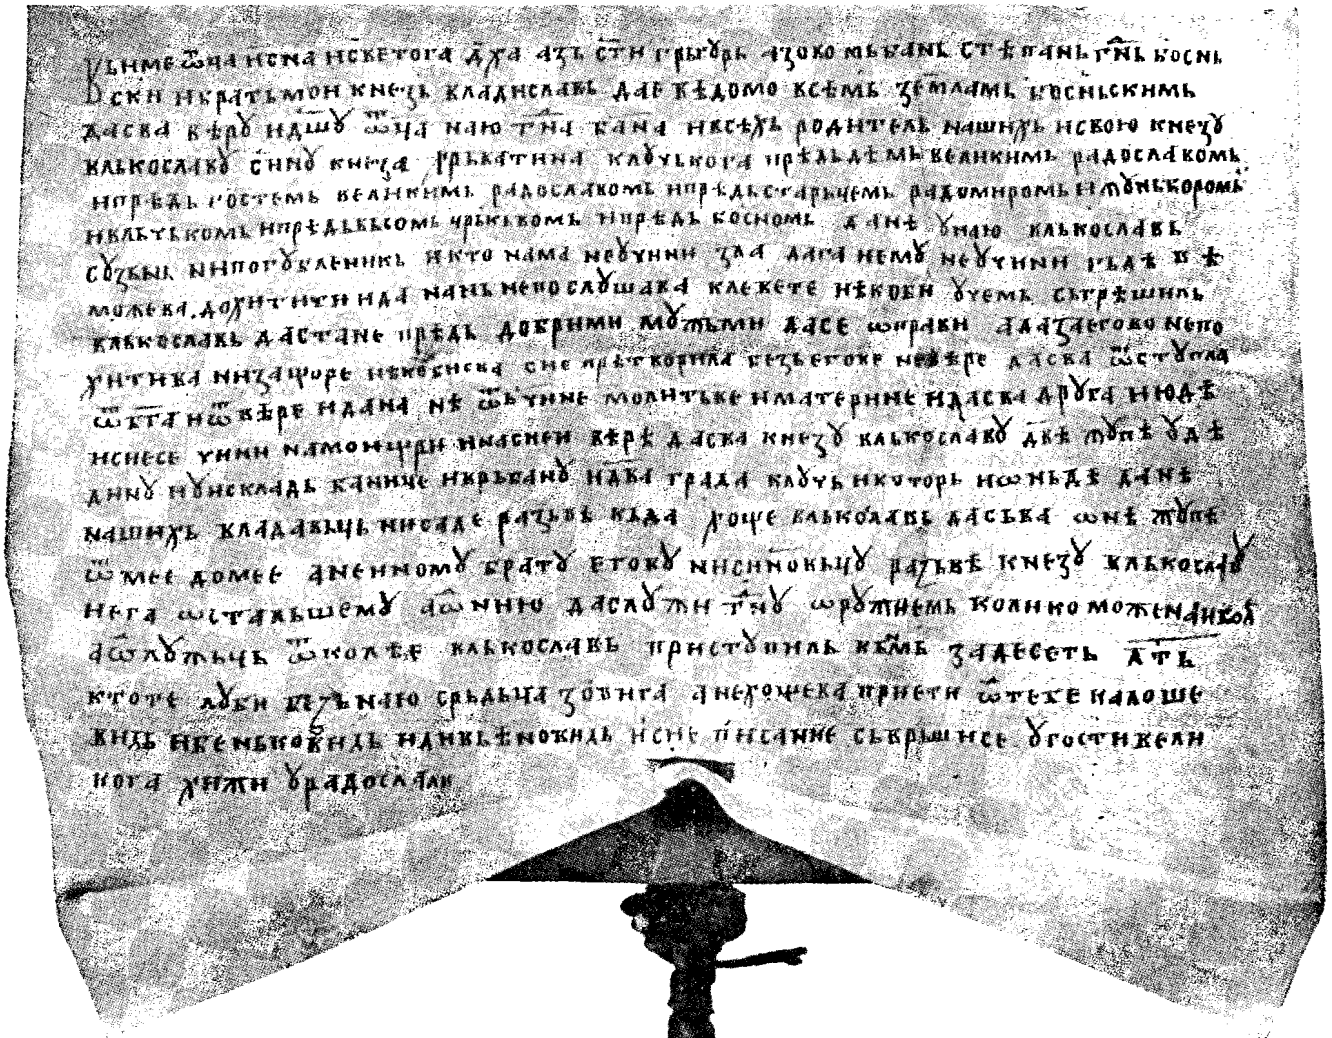 Вьиме ѿча исна исветога дх҃а азь ст҃и григорь азоко мь бань стѣпань гн҃ь боснь
ски ибратьмои кнезь владиславь дае вѣдомо всѣмь землꙗмь босньскимь
дасва вѣрꙋ идш҃ꙋ ѿча наю гн҃а бана ивсѣхь родитель нашихь исвою кнезꙋ
влькославꙋ сн҃нꙋ кнеза хрьватина клꙋчькога прѣдь дѣмь великимь радославомь
ипрѣдь гостемь великимь радославомь ипрѣдьстарьчемь радомиромь и жꙋньборомь
ивльчькомь ипрѣдьвьсомь чрьньвомь ипрѣдь босномь данѣ ꙋнаю влькославь
сꙋзьнь нипогꙋбленикь икто нама неꙋчини зла дага немꙋ неꙋчини гьдѣ вѣ
можева дохитити ида нань непослꙋшава клевете нѣкоби ꙋчемь сьгрѣшиль
влькославь дастане прѣдь добрими мꙋжьми дасе ѡправи адазаегово непо
хитива низащоре нѣкобисва сие прѣтворила безьегове невѣре дасва ѿстꙋпла
ѿбг҃а иѿвѣре идана нѣ ѿвѣчние молитьве иматерние идасва дрꙋга июдѣ
исиесе чини намоищри инасиеи вѣрѣ дасва кнезꙋ влькославꙋ двѣ жꙋпѣ ꙋдѣ
динꙋ иꙋнсклꙗдь баниче иврьбанꙋ идва града клꙋчь икоторь иѡньдѣ данѣ
нашихь владавьць нисаде разьвѣ кьда хоще влькославь дасьва ѡнѣ жꙋпѣ
ѿмее домее аниномꙋ братꙋ еговꙋ нисиновьцꙋ разьвѣ кнезꙋ влькославꙋ
нега ѡстальшемꙋ аѡннию даслꙋжи гн҃ꙋ ѡрꙋжиемь колико може идиков
аѿлꙋжьчь ѿколѣе влькославь пристꙋпиль кьмь задесеть лт҃ь
ктоте люби безьнаю срьдьца зовнга анехощева приети ѿтебе наюше
видь ибеньковидь идивьѣновидь исие писание сьврьши исе ꙋгости вели
кога хижи ꙋрадослали